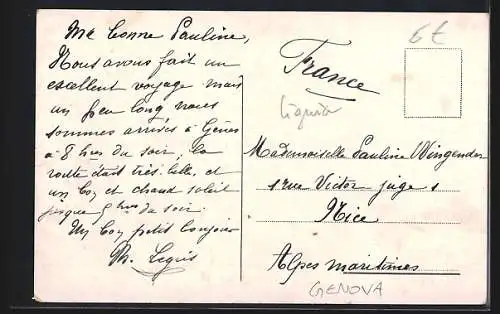 Ma bonne Pauline,
Nous avons fait un
excellent voyage mais
un peu long nous
sommes arrivés à Gênes
à 8 hres du soir, la
route était très belle, et
un bon et chaud soleil
jusque 5 hres du soir.
Un bon petit bonjour
France
Liguria
6€
Mademoiselle Pauline Wingender
1 rue Victor juge 1
Nice
Alpes maritimes
GENOVA